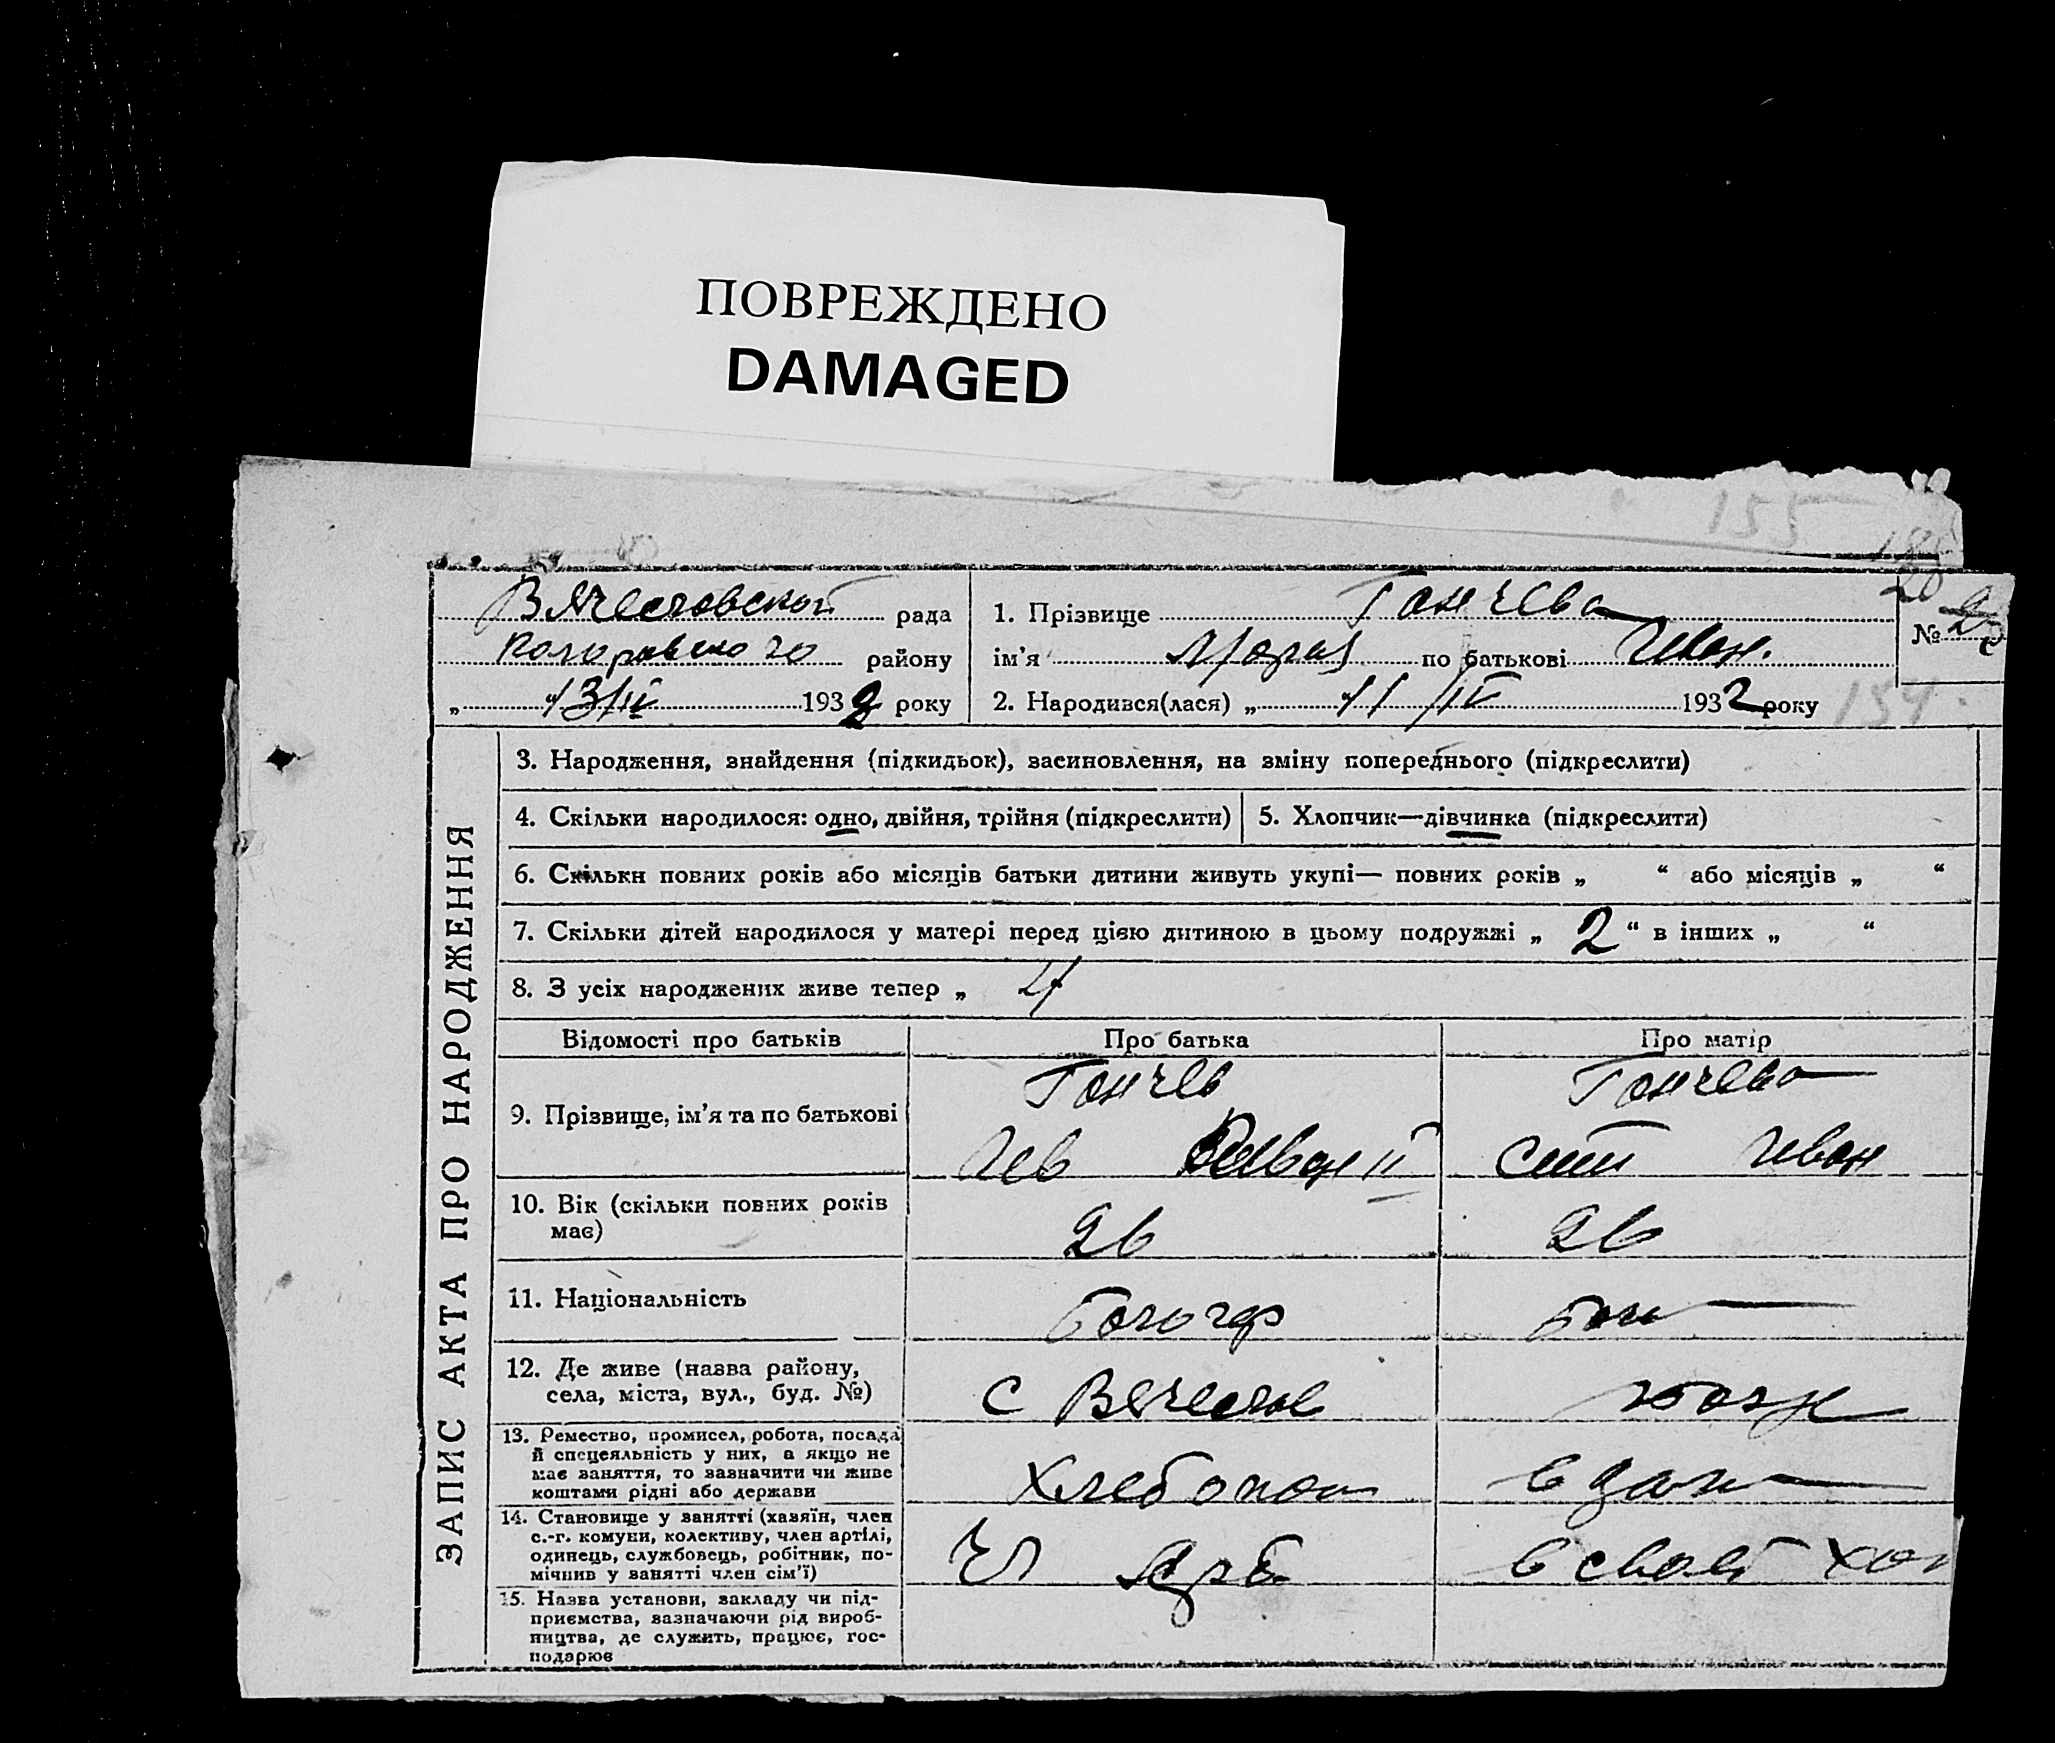 ПОВРЕЖДЕНО
DAMAGED
155
рада
району
„ 13/IV 1932 року
1. Прізвище Ганчева
ім’я Мария по батькові Иван.
2. Народився(лася) „ 11/IV 1932 року
№
154
ЗАПИС АКТА ПРО НАРОДЖЕННЯ
3. Народження, знайдення (підкидьок), засиновлення, на зміну попереднього (підкреслити)
4. Скільки народилося: одно, двійня, трійня (підкреслити)
5. Хлопчик—дівчинка (підкреслити)
6. Скільки повних років або місяців батьки дитини живуть укупі— повних років „ “ або місяців „ “
7. Скільки дітей народилося у матері перед цією дитиною в цьому подружжі „ 2 “ в інших „ “
8. З усіх народжених живе тепер „
Відомості про батьків Про батька Про матір
9. Прізвище, ім’я та по батькові
Ганчев
Ганчева
Иван
10. Вік (скільки повних років
має)
26 26
11. Національність
болгар
12. Де живе (назва району,
села, міста, вул., буд. №)
с
13. Ремество, промисел, робота, посада
й спецеяльність у них, а якщо не
має заняття, то зазначити чи живе
коштами рідні або держави
14. Становище у занятті (хазяїн, член
с.-г. комуни, колективу, член артілі,
одинець, службовець, робітник, по-
мічнив у занятті член сім’ї)
в своей хоз
15. Назва установи, закладу чи під-
приємства, зазначаючи рід вироб-
ництва, де служить, працює, гос-
подарює